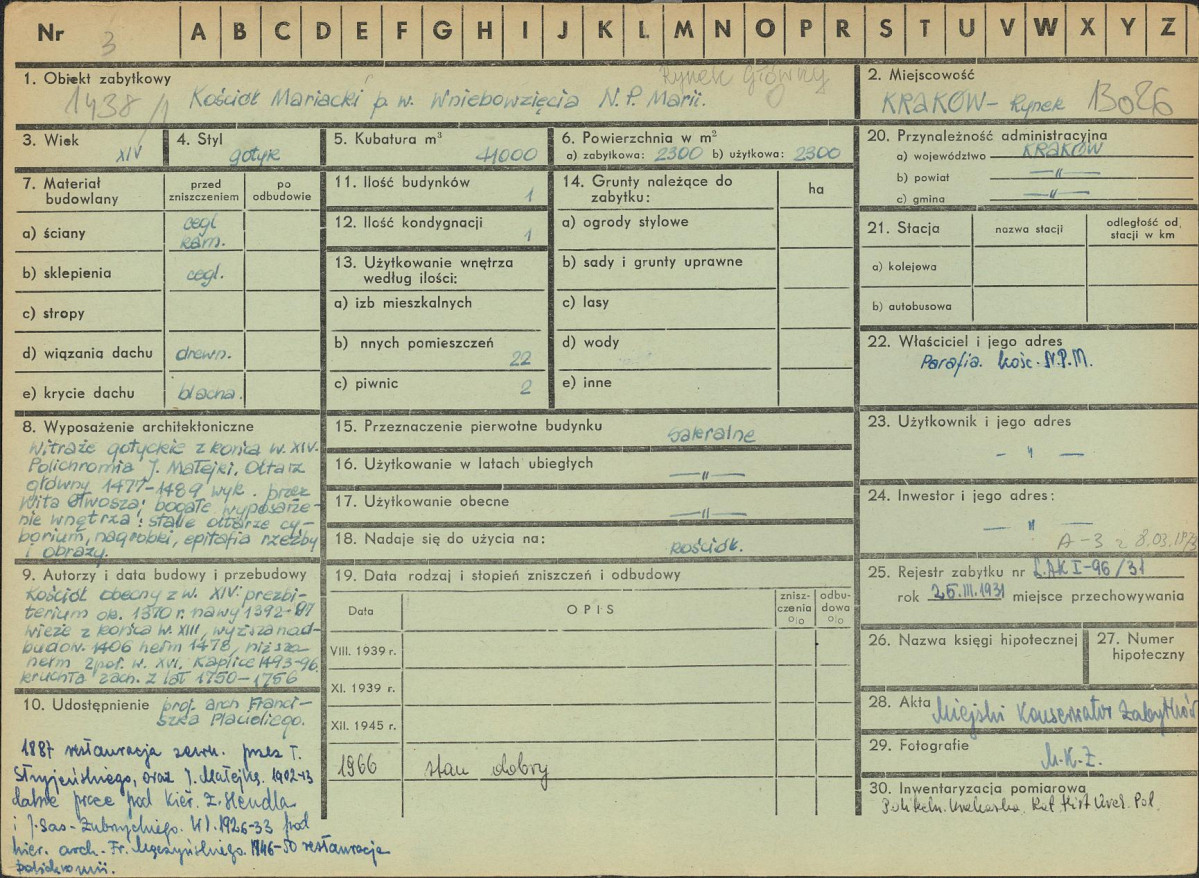 Nr 3 A B C D E F G H I J K L M N O P R S T U V W X Y Z
1. Obiekt zabytkowy
Rynek Główny
1438/1 Kościół Mariacki p.w. Wniebowzięcia N.P. Marii.
2. Miejscowość
KRAKÓW - Rynek 13026
3. Wiek
XIV
4. Styl
gotyk
5. Kubatura m³
41000
6. Powierzchnia w m²
a) zabytkowa: 2300 b) użytkowa: 2300
20. Przynależność administracyjna
a) województwo KRAKÓW
b) powiat —"—
c) gmina —"—
7. Materiał budowlany
przed zniszczeniem
po odbudowie
a) ściany
cegl
kam.
b) sklepienia cegl.
c) stropy
d) wiązania dachu drewn.
e) krycie dachu blacha.
11. Ilość budynków 1
12. Ilość kondygnacji 1
13. Użytkowanie wnętrza
według ilości:
a) izb mieszkalnych
b) nnych pomieszczeń 22
c) piwnic 2
14. Grunty należące do
zabytku:
ha
a) ogrody stylowe
b) sady i grunty uprawne
c) lasy
d) wody
e) inne
21. Stacja
nazwa stacji
odległość od
stacji w km
a) kolejowa
b) autobusowa
22. Właściciel i jego adres
Parafia kośc. N.P.M.
8. Wyposażenie architektoniczne
Witraże gotyckie z końca w. XIV.
Polichromia J. Matejki. Ołtarz
główny 1477-1489 wyk. przez
Wita Stwosza; bogate wyposaże-
nie wnętrza: stalle ołtarze cy-
borium, nagrobki, epitafia rzeźby
i obrazy.
15. Przeznaczenie pierwotne budynku sakralne
16. Użytkowanie w latach ubiegłych —"—
17. Użytkowanie obecne —"—
18. Nadaje się do użycia na: kościół.
23. Użytkownik i jego adres
—"—
24. Inwestor i jego adres:
—"—
A-3 z 8.03.
9. Autorzy i data budowy i przebudowy
Kościół obecny z w. XIV. prezbi-
terium ok. 1370 r. nawy 1392-97
wieże z końca w. XIII, wyższa nad-
budow. 1406 hełm 1478, niższa
hełm 2 poł. w. XVI. Kaplice 1493-96.
kruchta zach. z lat 1750-1756
proj. arch Franci-
szka Placidiego.
10. Udostępnienie
1887 restauracja zewn. przez T.
Stryjeńskiego, oraz J. Matejkę. 1902-13
dalsze prace pod kier. Z. Hendla
i J. Sas-Zubrzyckiego. W l. 1926-33 pod
kier. arch. Fr. Mączyńskiego. 1946-50 restauracja
polichromii.
19. Data rodzaj i stopień zniszczeń i odbudowy
Data
OPIS
znisz-
czenia
%
odbu-
dowa
%
VIII. 1939 r.
XI. 1939 r.
XII. 1945 r.
1966 stan dobry
25. Rejestr zabytku nr L.AK I-96/31
rok 25.III.1931 miejsce przechowywania
26. Nazwa księgi hipotecznej
27. Numer
hipoteczny
28. Akta Miejski Konserwator Zabytków
29. Fotografie
M.K.Z.
30. Inwentaryzacja pomiarowa
Politechn. Krakowska, Kat. Hist. Arch. Pol.